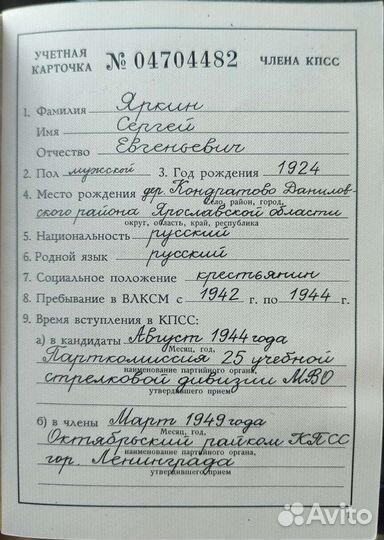 УЧЕТНАЯ КАРТОЧКА № 04704482 ЧЛЕНА КПСС
1. Фамилия Яркин
Имя Сергей
Отчество Евгеньевич
2. Пол мужской 3. Год рождения 1924
4. Место рождения дер. Кондратово Данилов-
село, район, город,
ского района Ярославской области
округ, область, край, республика
5. Национальность русский
6. Родной язык русский
7. Социальное положение крестьянин
8. Пребывание в ВЛКСМ с 1942 г. по 1944 г.
9. Время вступления в КПСС:
а) в кандидаты Август 1944 года
Месяц, год,
Парткомиссия 25 учебной
наименование партийного органа,
стрелковой дивизии МВО
утвердившего прием
б) в члены Март 1949 года
Месяц, год,
Октябрьский райком КПСС
наименование партийного органа,
гор. Ленинграда
утвердившего прием
1
Avito